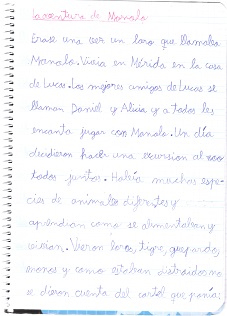 la aventura de Manolo
Erase una vez un loro que llamaba
Manolo. Vivia en Mérida en la casa
de Lucas. Los mejores amigos de Lucas se
llaman Daniel y Alicia y a todos les
encanta jugar con Manolo. Un dia
decidieron hacer una excursion al zoo
todos juntos. Habia muchas espe-
cies de animales diferentes y
aprendian como se alimentaban y
vivian. Vieron loros, tigre, guepardo,
monos y como estaban distraidos no
se dieron cuenta del cartel que ponia: